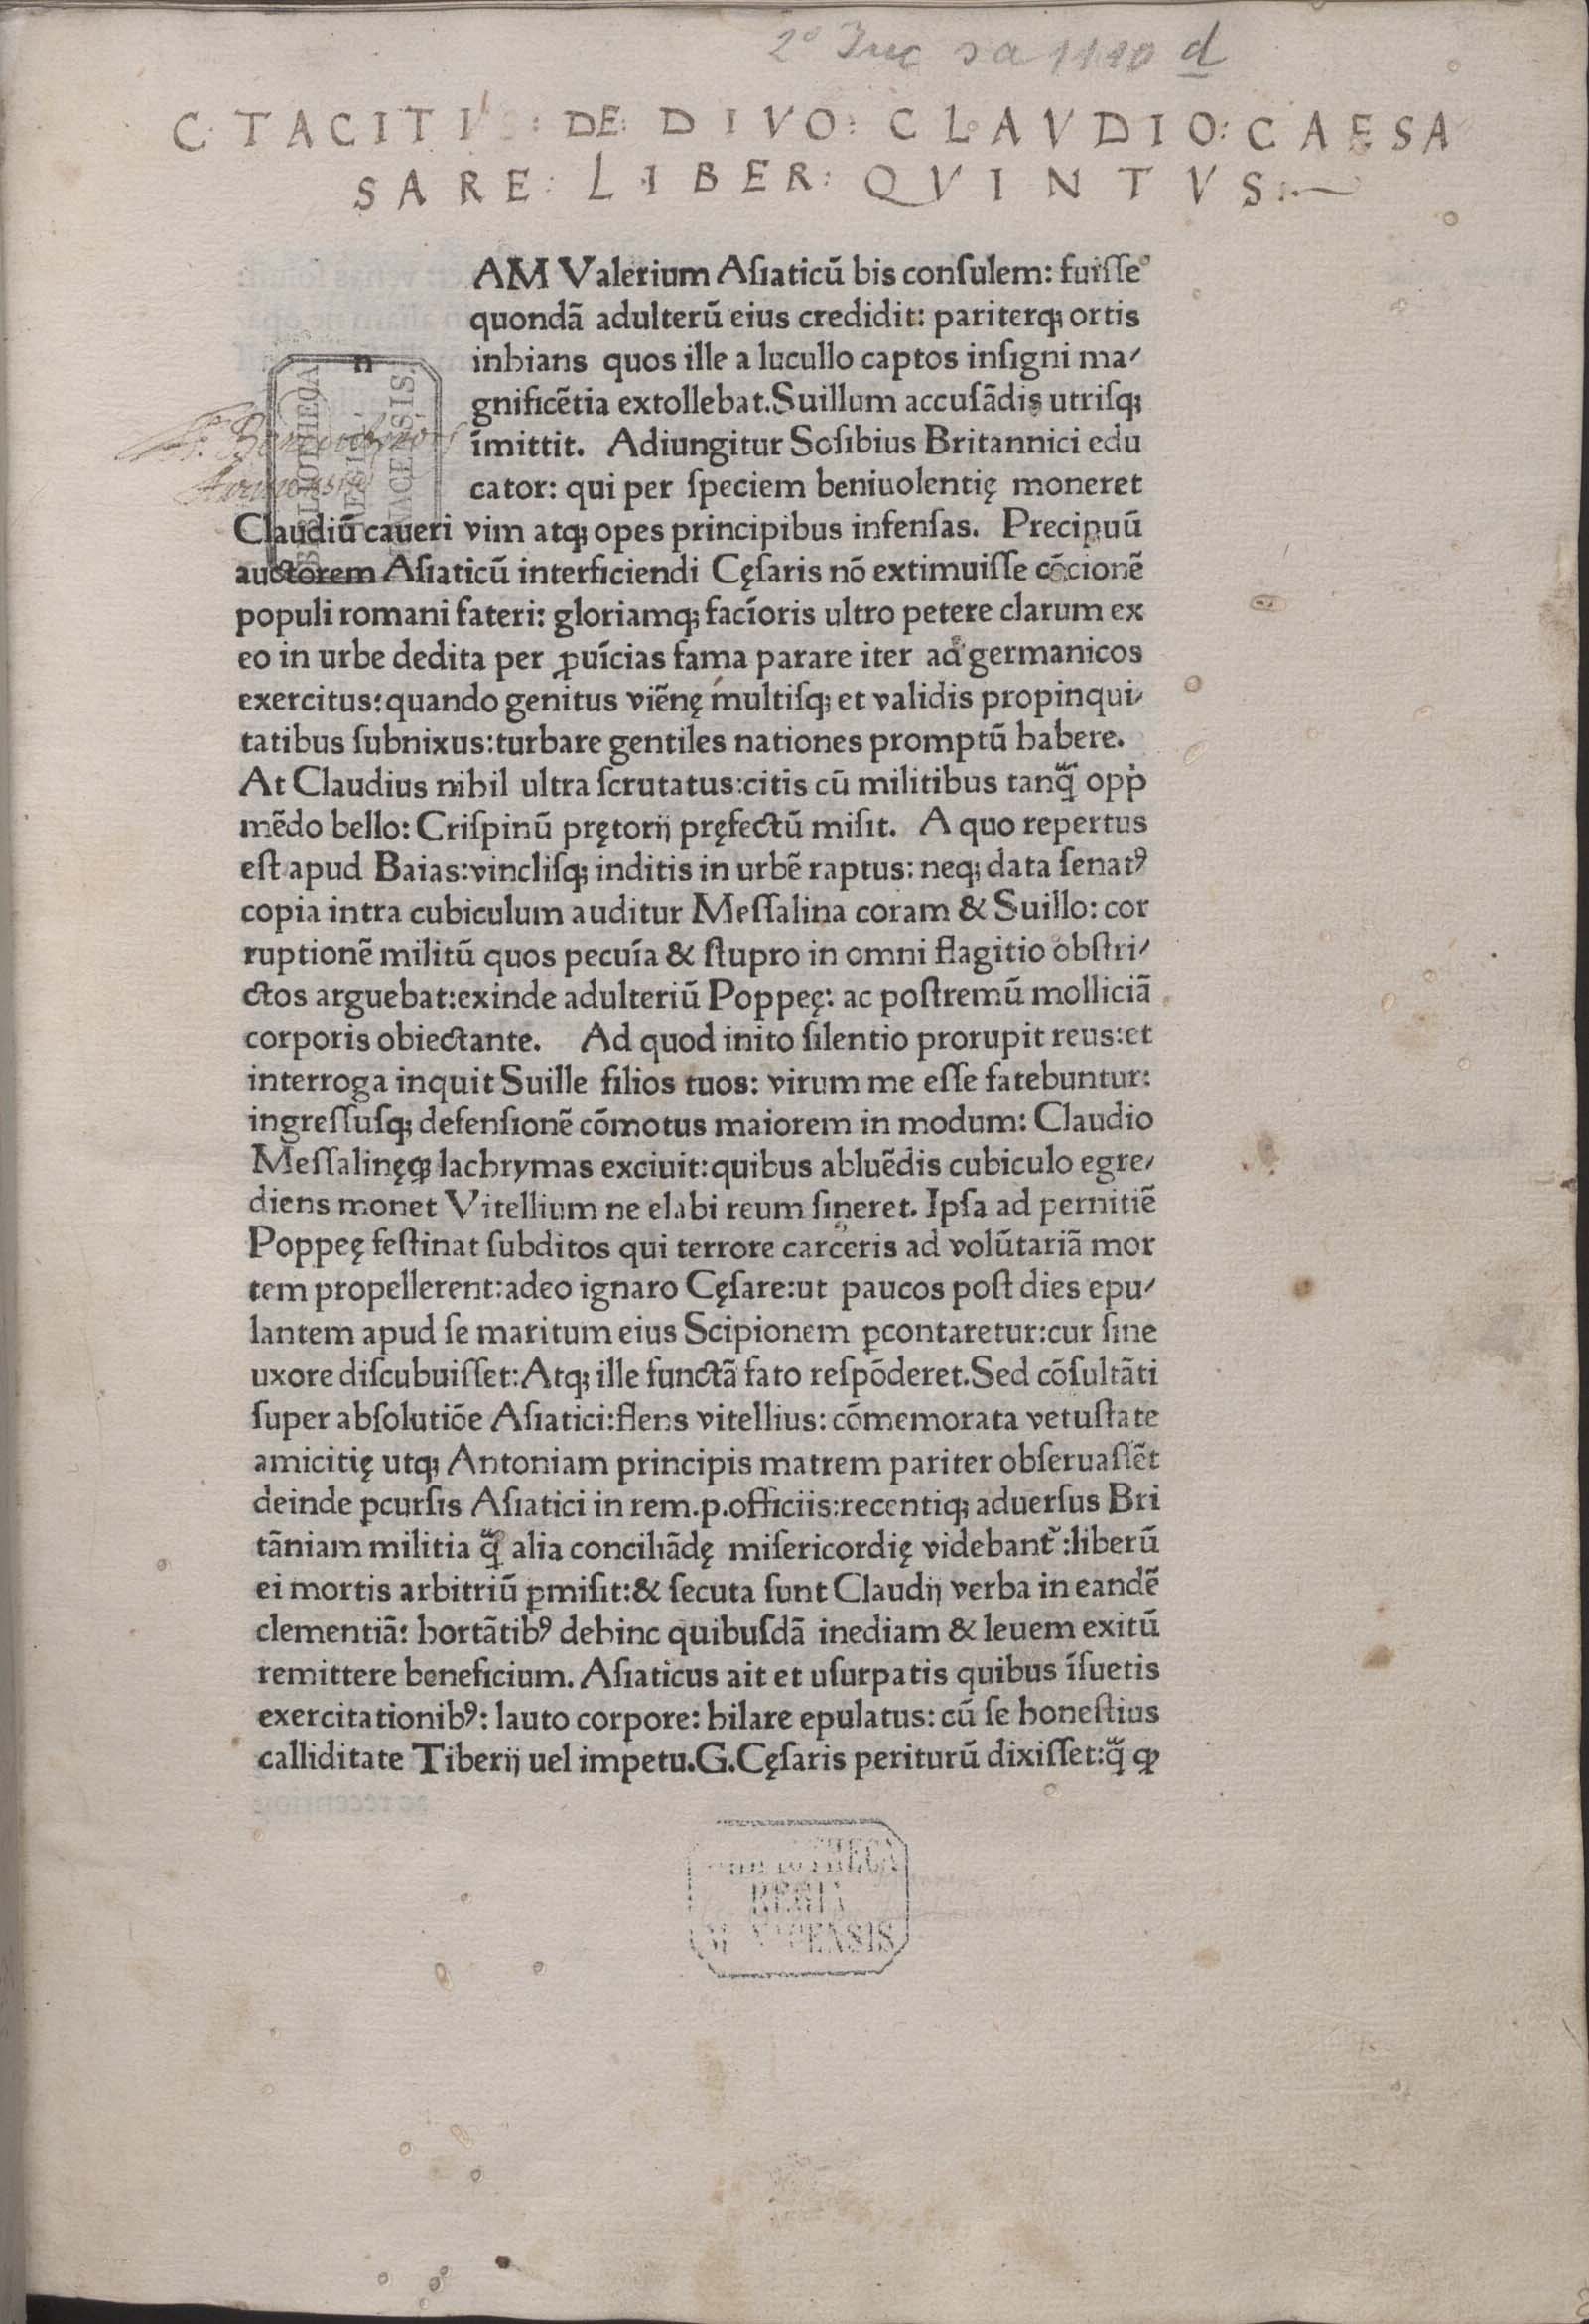 2° Inc s a 1110 d
C. TACITI : DE: DIVO: CLAVDIO: CAESA
SARE: LIBER: QVINTVS:.
AM Valerium Aſiaticū bis conſulem: fuiſſe
quondā adulterū eius credidit: pariterq; ortis
inhians quos ille a lucullo captos inſigni ma/
n
gnificētia extollebat. Suillum accuſādis utriſq;
īmittit. Adiungitur Soſibius Britannici edu
cator: qui per ſpeciem beniuolentię moneret
Claudiū caueri vim atq; opes principibus infenſas. Precipuū
auctorem Aſiaticū interficiendi Cęſaris nō extimuiſſe cōcionē
populi romani fateri: gloriamq; facīoris ultro petere clarum ex
eo in urbe dedita per ꝓuīcias fama parare iter ad germanicos
exercitus: quando genitus viēnę multiſq; et validis propinqui/
tatibus ſubnixus: turbare gentiles nationes promptū habere.
At Claudius nihil ultra ſcrutatus: citis cū militibus tanq̃ opp̍
mēdo bello: Criſpinū prętorij pręfectū miſit. A quo repertus
eſt apud Baias: vincliſq; inditis in urbē raptus: neq; data ſenatꝰ
copia intra cubiculum auditur Meſſalina coram & Suillo: cor
ruptionē militū quos pecuīa & ſtupro in omni flagitio obſtri/
ctos arguebat: exinde adulteriū Poppeę: ac poſtremū molliciā
corporis obiectante. Ad quod inito ſilentio prorupit reus: et
interroga inquit Suille filios tuos: virum me eſſe fatebuntur:
ingreſſuſq; defenſionē cōmotus maiorem in modum: Claudio
Meſſalinęꝙ lachrymas exciuit: quibus abluēdis cubiculo egre/
diens monet Vitellium ne elabi reum ſineret. Ipſa ad pernitiē
Poppeę feſtinat ſubditos qui terrore carceris ad volūtariā mor
tem propellerent: adeo ignaro Cęſare: ut paucos poſt dies epu/
lantem apud ſe maritum eius Scipionem ꝑcontaretur: cur ſine
uxore diſcubuiſſet: Atq; ille functā fato reſpōderet. Sed cōſultāti
ſuper abſolutiōe Aſiatici: flens vitellius: cōmemorata vetuſtate
amicitię utq; Antoniam principis matrem pariter obſeruaſſēt
deinde ꝑcurſis Aſiatici in rem. p. officiis: recentiq; aduerſus Bri
tāniam militia q̃ꝫ alia conciliādę miſericordię videbant᷑: liberū
ei mortis arbitriū ꝑmiſit: & ſecuta ſunt Claudij verba in eandē
clementiā: hortātibꝰ dehinc quibuſdā inediam & leuem exitū
remittere beneficium. Aſiaticus ait et uſurpatis quibus īſuetis
exercitationibꝰ: lauto corpore: hilare epulatus: cū ſe honeſtius
calliditate Tiberij uel impetu. G. Cęſaris periturū dixiſſet: q̃ ꝙ
BIBLIOTHECA
REGIA
MONACENSIS